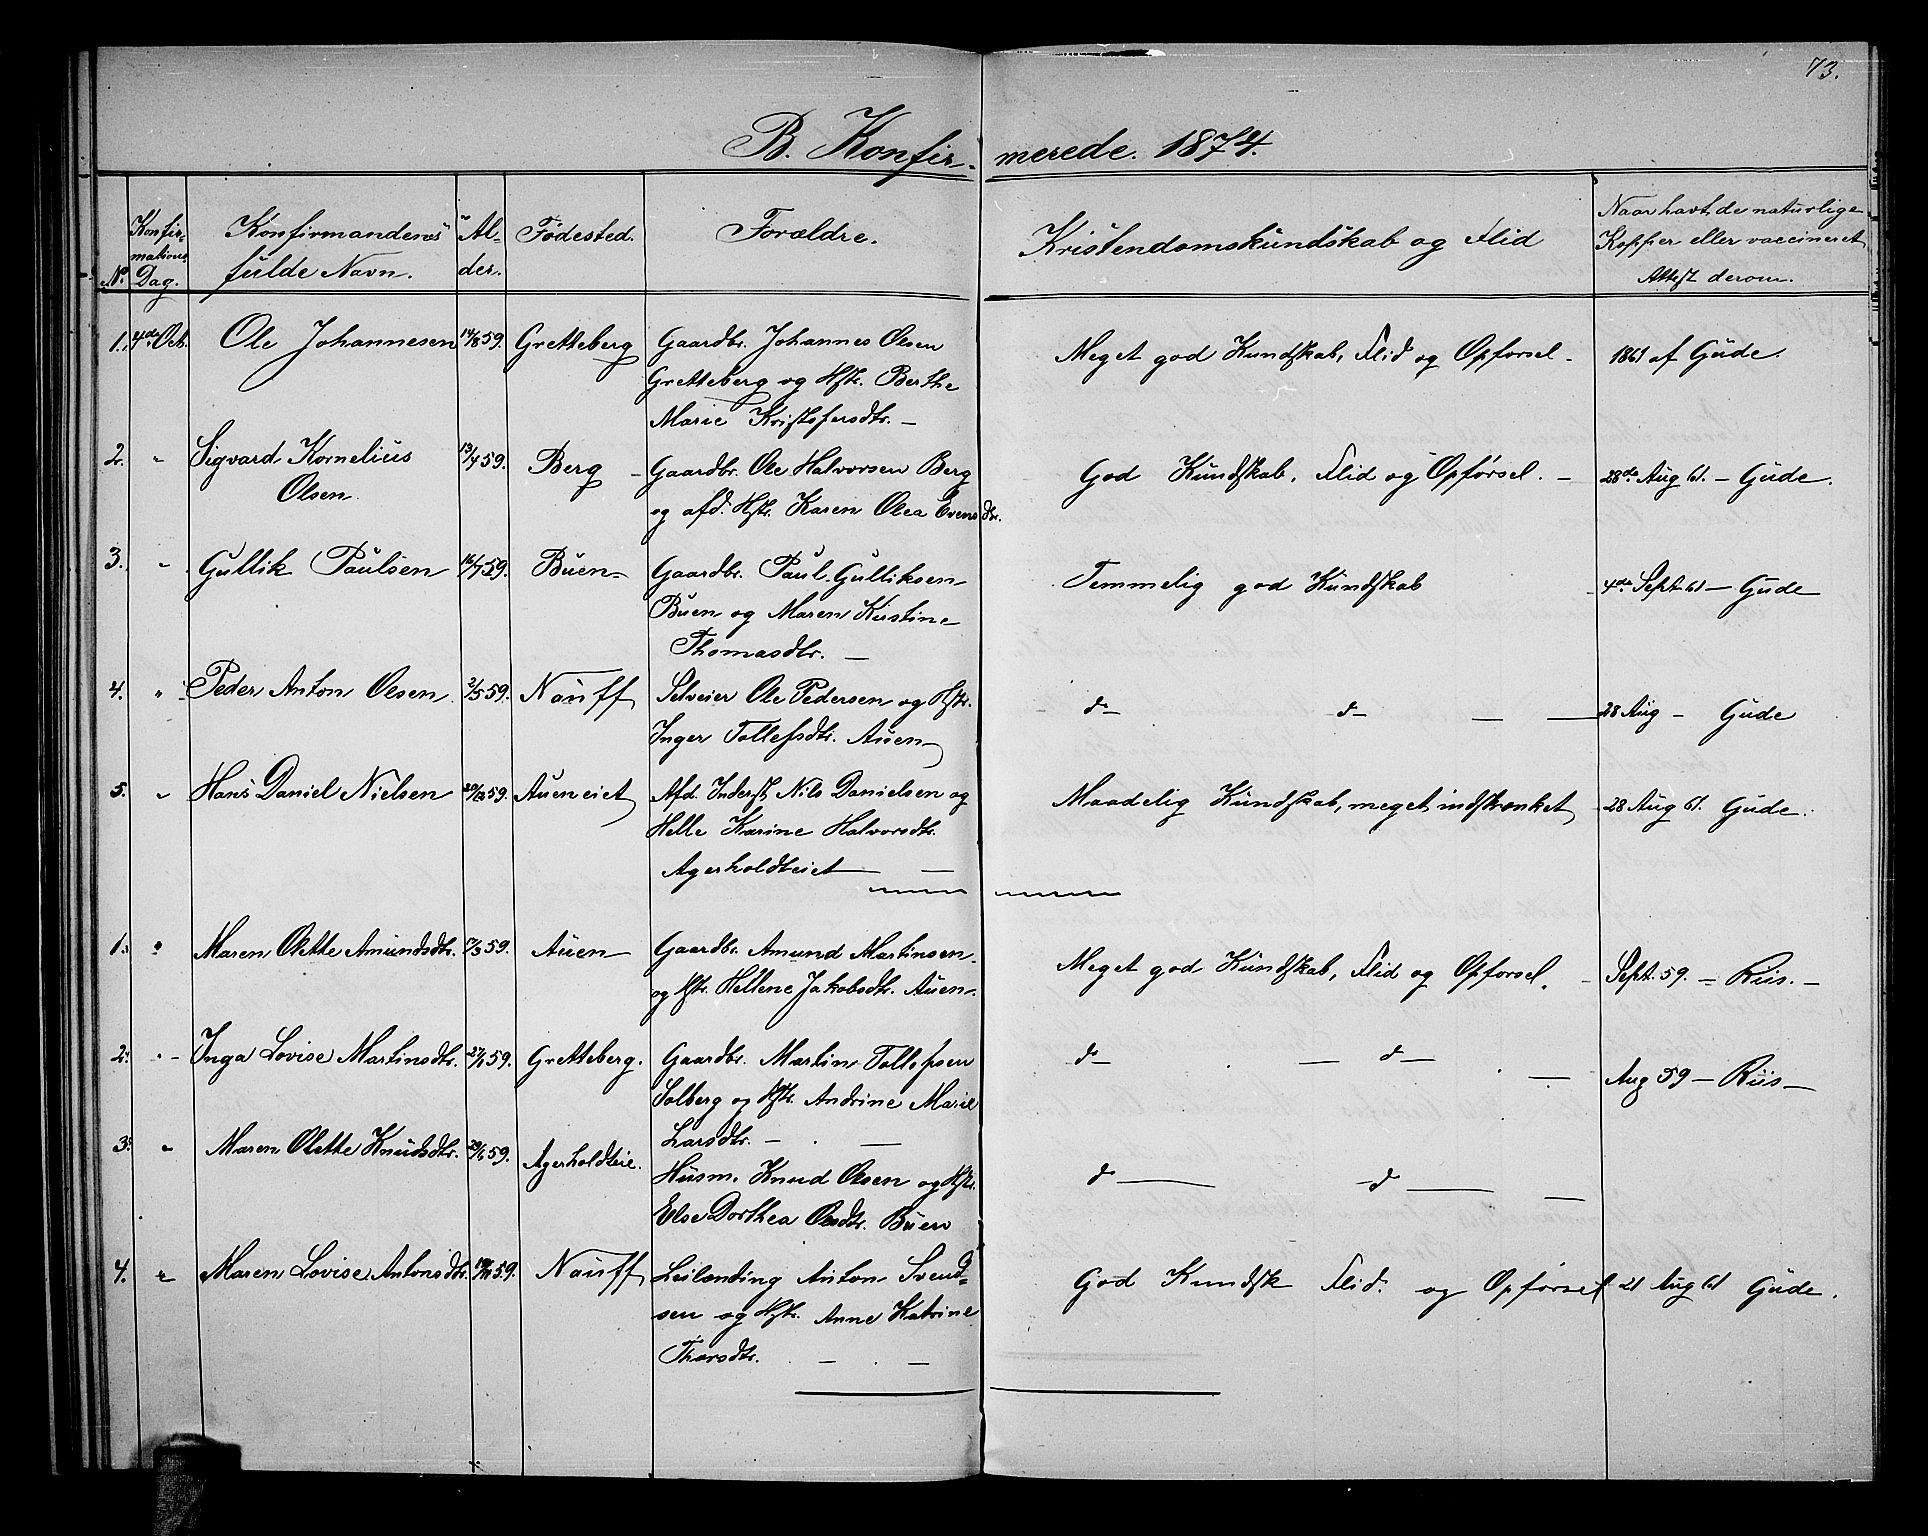 73.
B. Konfir- merede. 1874.
No Konfir- mations Dag. Konfirmandens fulde Navn. Al- der. Födested. Forældre. Kristendomskundskab og Flid Naar havt de naturlige Kopper eller vaccineret Attest derom.
1. 4de Oct. Ole Johannesen 14/8 59. Gretteberg Gaardbr. Johannes Olsen Meget god Kundskab, Flid og Opførsel - 1861 af Gude.
Gretteberg og Hstr. Berthe
Marie Kristofersdtr. -
2. " Sigvard Kornelius 13/4 59. Berg - Gaardbr. Ole Halvorsen Berg God Kundskab, Flid og Opførsel. - 28de Aug 61. - Gude.
Olsen og afd. Hstr. Karen Olea Evensdtr.
3. " Gullik Paulsen 16/7 59. Buen - Gaardbr. Paul Gulliksen Temmelig god Kundskab - 4de Sept 61 - Gude
Buen og Maren Kirstine
Thomasdtr. -
4. " Peder Anton Olsen 2/5 59. Nauff Selveier Ole Pedersen og Hstr. do do - - 28 Aug - Gude
Inger Tollefsdtr. Auen
5. " Hans Daniel Nielsen 20/12 59. Aueneiet Afd. Inderst Nils Danielsen og Maadelig Kundskab, meget indskrænket 28 Aug 61. Gude.
Helle Karine Halvorsdtr.
Agerholdteiet -
1. " Maren Olette Amundsdtr. 17/3 59. Auen Gaardbr. Amund Martinsen Meget god Kundskab, Flid og Opførsel. - Sept. 59. - Riis. -
og Hstr. Hellene Jakobsdtr. Auen.
2. " Inga Lovise Martinsdtr. 59. Gretteberg. Gaardbr. Martin Tollefsen do - do - - Aug 59 - Riis -
Solberg og Hstr. Andrine Marie
Larsdtr. -
3. " Maren Olette Knudsdtr. 59. Agerholdteie. Husm. Knud Olsen og Hstr. do - do - -
Else Dorthea Olsdtr. Buen
4. " Maren Lovise Antonsdtr. 59. Nauff Leilænding Anton Svend- God Kundsk Flid. og Opførsel - 21 Aug 61 Gude.
sen og Hstr. Anne Katrine
Thorsdtr. - -